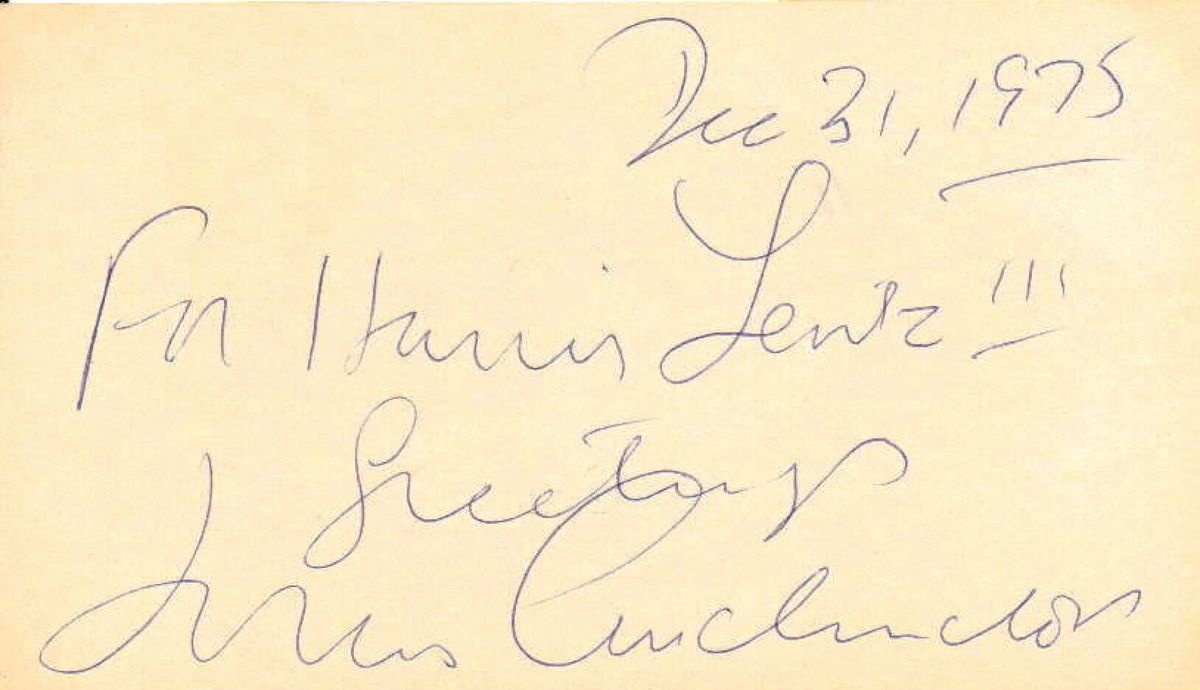 Dec 31, 1975
For Harris Lentz III
Greetings
Louis Auchincloss